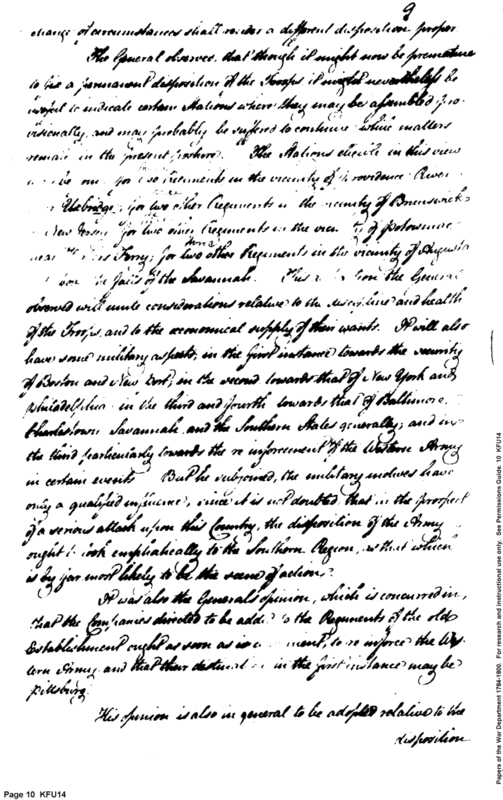 9
change of circumstances shall render a different disposition proper
The General observes, that though it might now be premature
to fix a permanent disposition of the Troops it might nevertheless be
useful to indicate certain Stations where they may be assembled pro-
visionally, and may probably be suffered to continue while matters
remain in the present posture. The Stations eligible in this view
one for two regiments in the vicinity of Providence River
Uxbridge; for two other Regiments in the vicinity of Brunswick
New Jersey for two other Regiments in the of Potowmac
near Ferry; for two other Regiments in the vicinity of Augusta
the falls of the Savannah. This the General
observed will unite considerations relative to the discipline and health
of the Troops, and to the economical supply of their wants. It will also
have some military aspects, in the first instance towards the security
of Boston and New York; in the second towards that of New York and
Philadelphia in the third and fourth towards that of Baltimore
Charlestown Savannah and the Southern States generally; and in
the third particularly towards the re inforcement of the Western Army
in certain events But he subjoined, the military motives have
only a qualified influence, since it is not doubted that in the prospect
of a serious attack upon this Country, the disposition of the Army
ought to look emphatically to the Southern Region, as that which
is by far most likely to be the scene of action.
It was also the Generals opinion, which is concurred in,
that the Companies directed to be added to the Regiments of the old
Establishment ought as soon as to re inforce the Wes-
tern Army and that their in the first instance may be
Pittsburg
His opinion is also in general to be adopted relative to the
disposition
Page 10 KFU14
Papers of the War Department 1784-1800. For research and instructional use only. See Permissions Guide. 10 KFU14